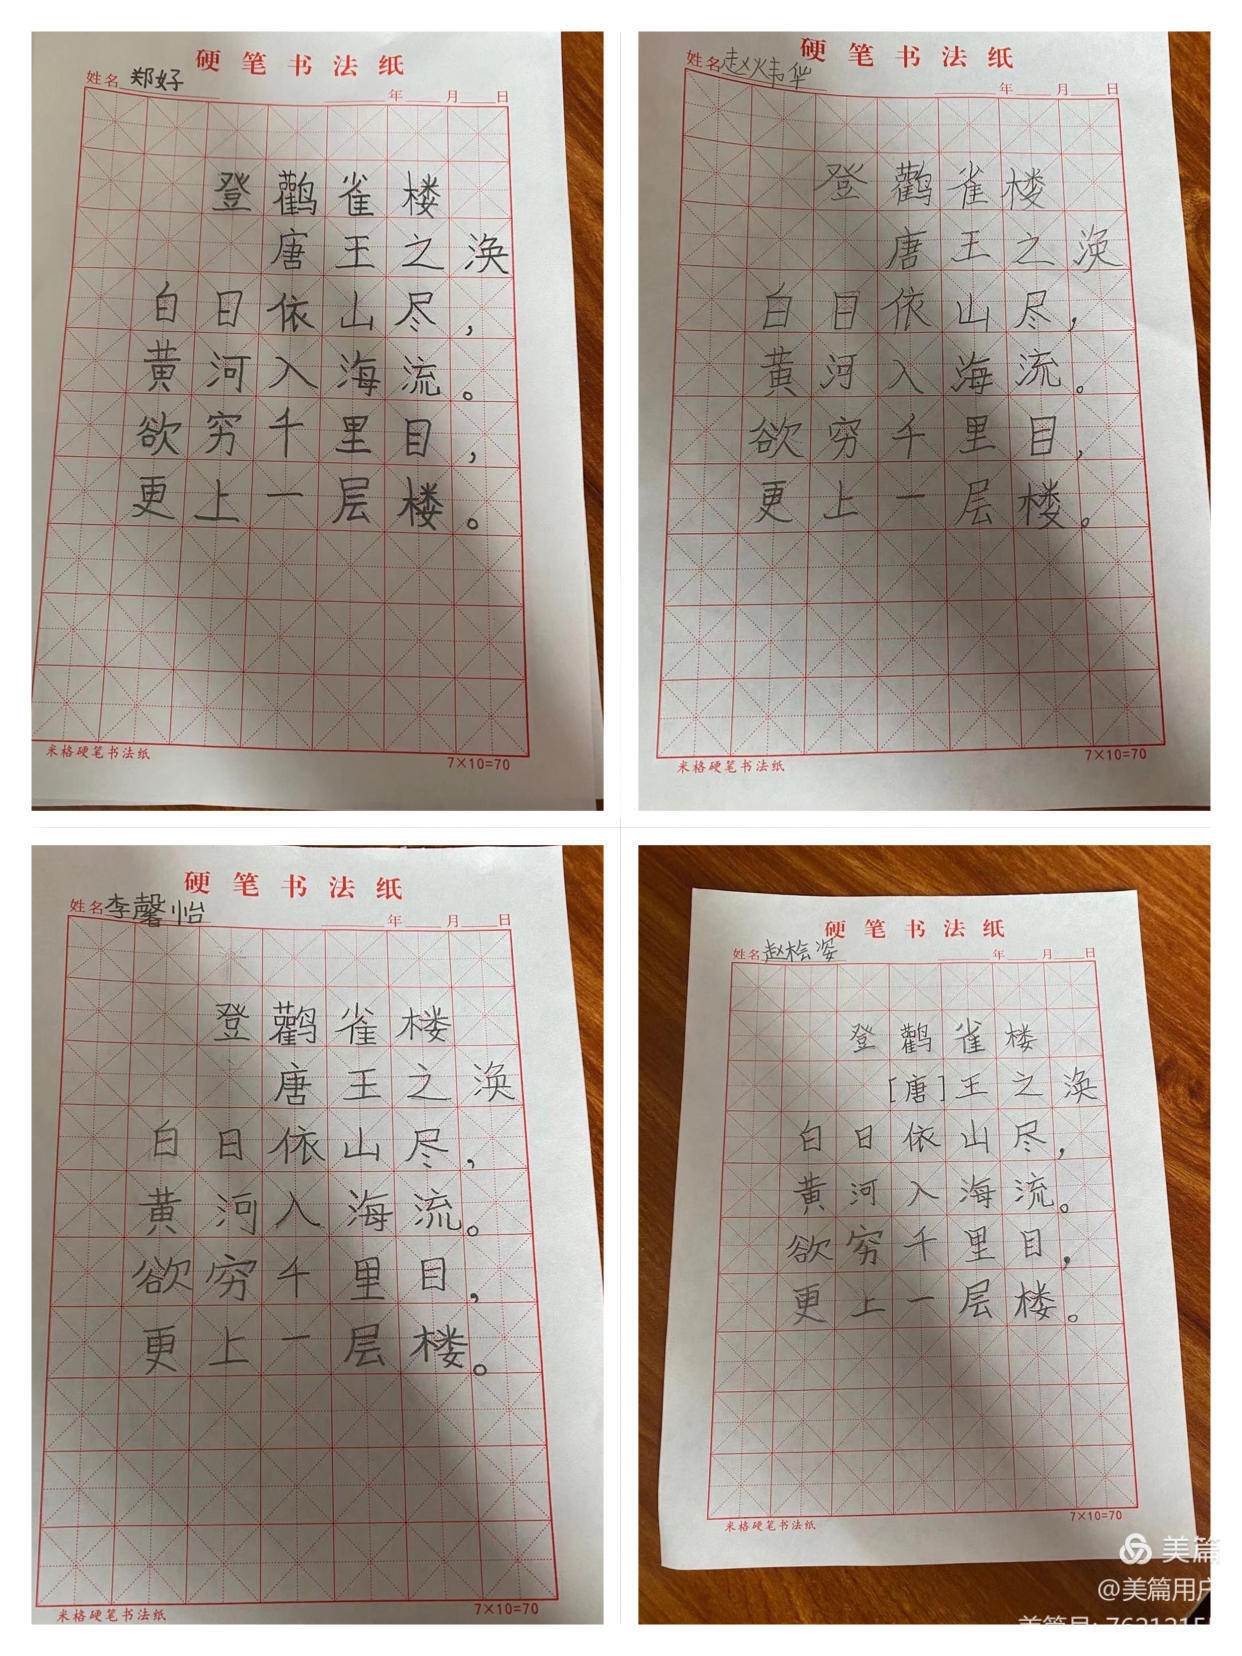 硬笔书法纸
姓名 郑好 年 月 日
登鹳雀楼
唐 王之涣
白日依山尽，
黄河入海流。
欲穷千里目，
更上一层楼。
米格硬笔书法纸 7×10=70
硬笔书法纸
姓名 赵炜华 年 月 日
登鹳雀楼
唐 王之涣
白日依山尽，
黄河入海流。
欲穷千里目，
更上一层楼。
米格硬笔书法纸 7×10=70
硬笔书法纸
姓名 李馨怡 年 月 日
登鹳雀楼
唐 王之涣
白日依山尽，
黄河入海流。
欲穷千里目，
更上一层楼。
米格硬笔书法纸 7×10=70
硬笔书法纸
姓名 赵桧姿 年 月 日
登鹳雀楼
[唐]王之涣
白日依山尽，
黄河入海流。
欲穷千里目，
更上一层楼。
米格硬笔书法纸 7×10=70
美篇
@美篇用户